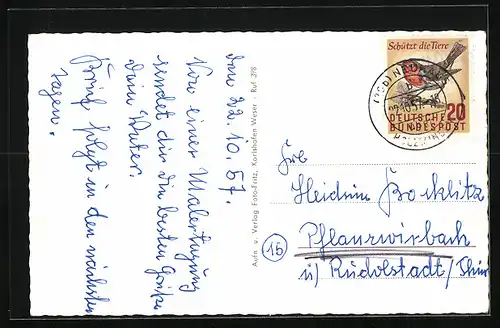 den 22. 10. 57.
Von einer Malertagung
sendet dir die besten Grüße
Dein Vater.
Brief folgt in den nächsten
Tagen.
Aufn. u. Verlag Foto-Fritz, Karlshafen Weser - Ruf 378
Schützt die Tiere
20
DEUTSCHE
BUNDESPOST
HOLZMINDEN
Frl.
Heidrun Bocklitz
15
Pflanzwirbach
ü/ Rudolstadt/Thür